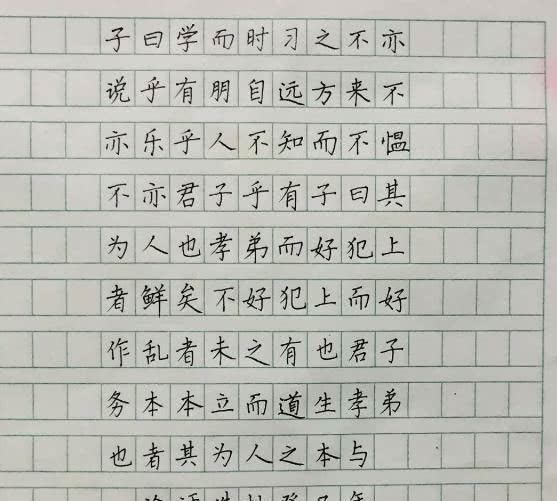 子曰学而时习之不亦
说乎有朋自远方来不
亦乐乎人不知而不愠
不亦君子乎有子曰其
为人也孝弟而好犯上
者鲜矣不好犯上而好
作乱者未之有也君子
务本本立而道生孝弟
也者其为人之本与